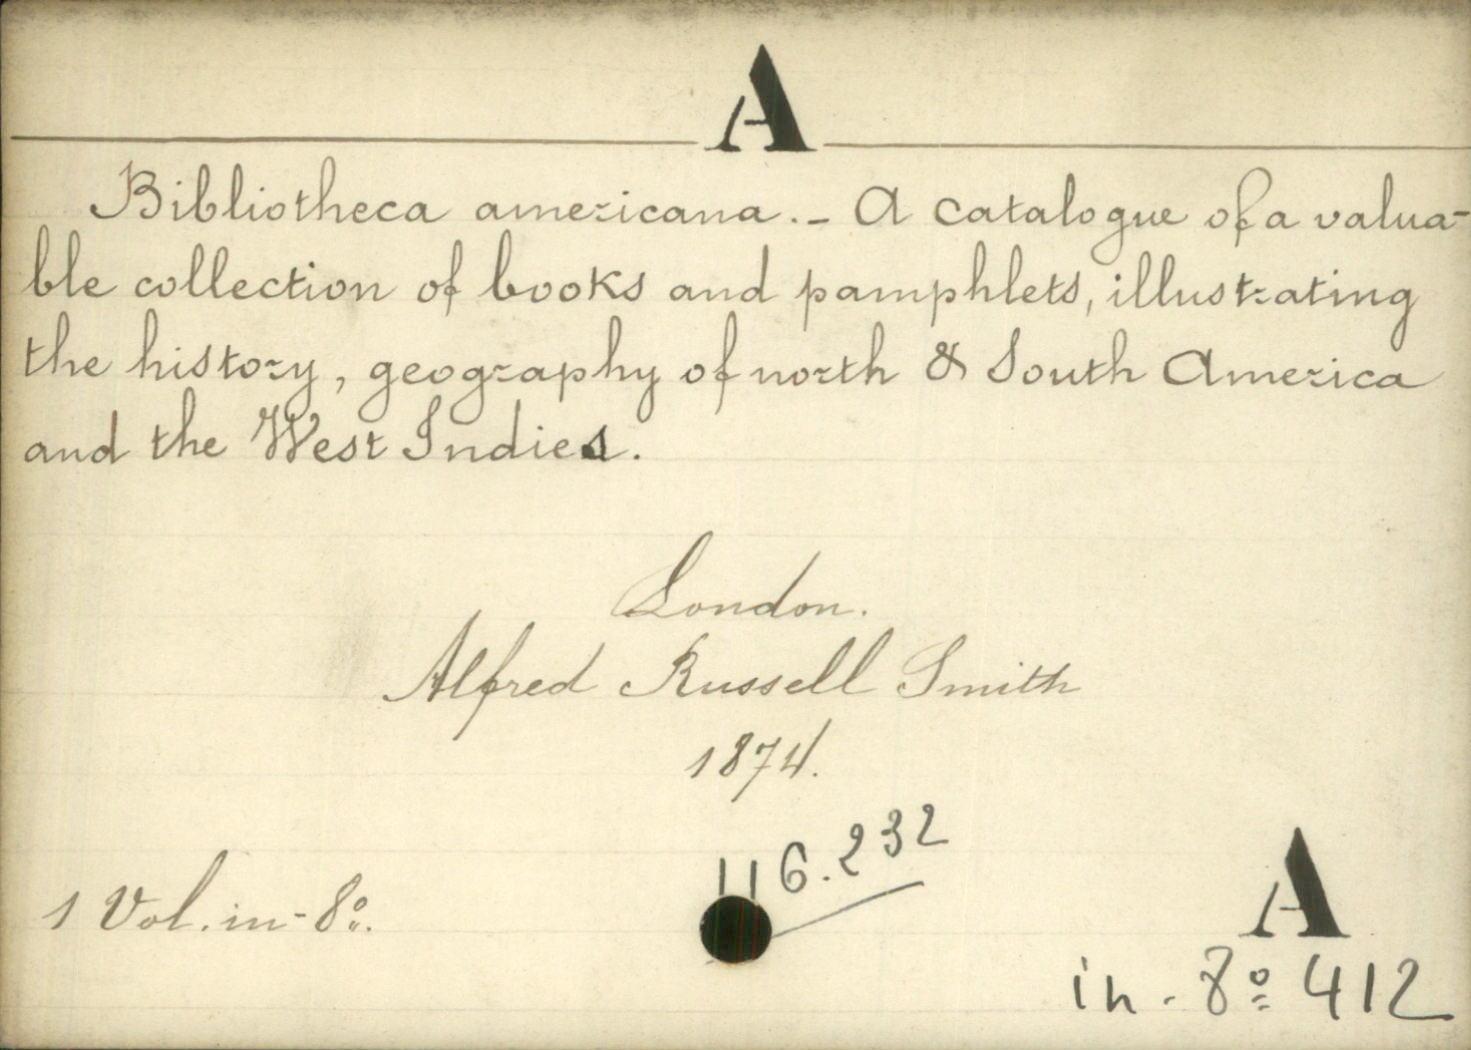 A
Bibliotheca americana. - A catalogue of a valua-
ble collection of books and pamphlets, illustrating
the history, geography of north & South America
and the West Indies.
London.
Alfred Russell Smith
1874.
116.232
1 Vol. in-8º.
A
in-8º 412